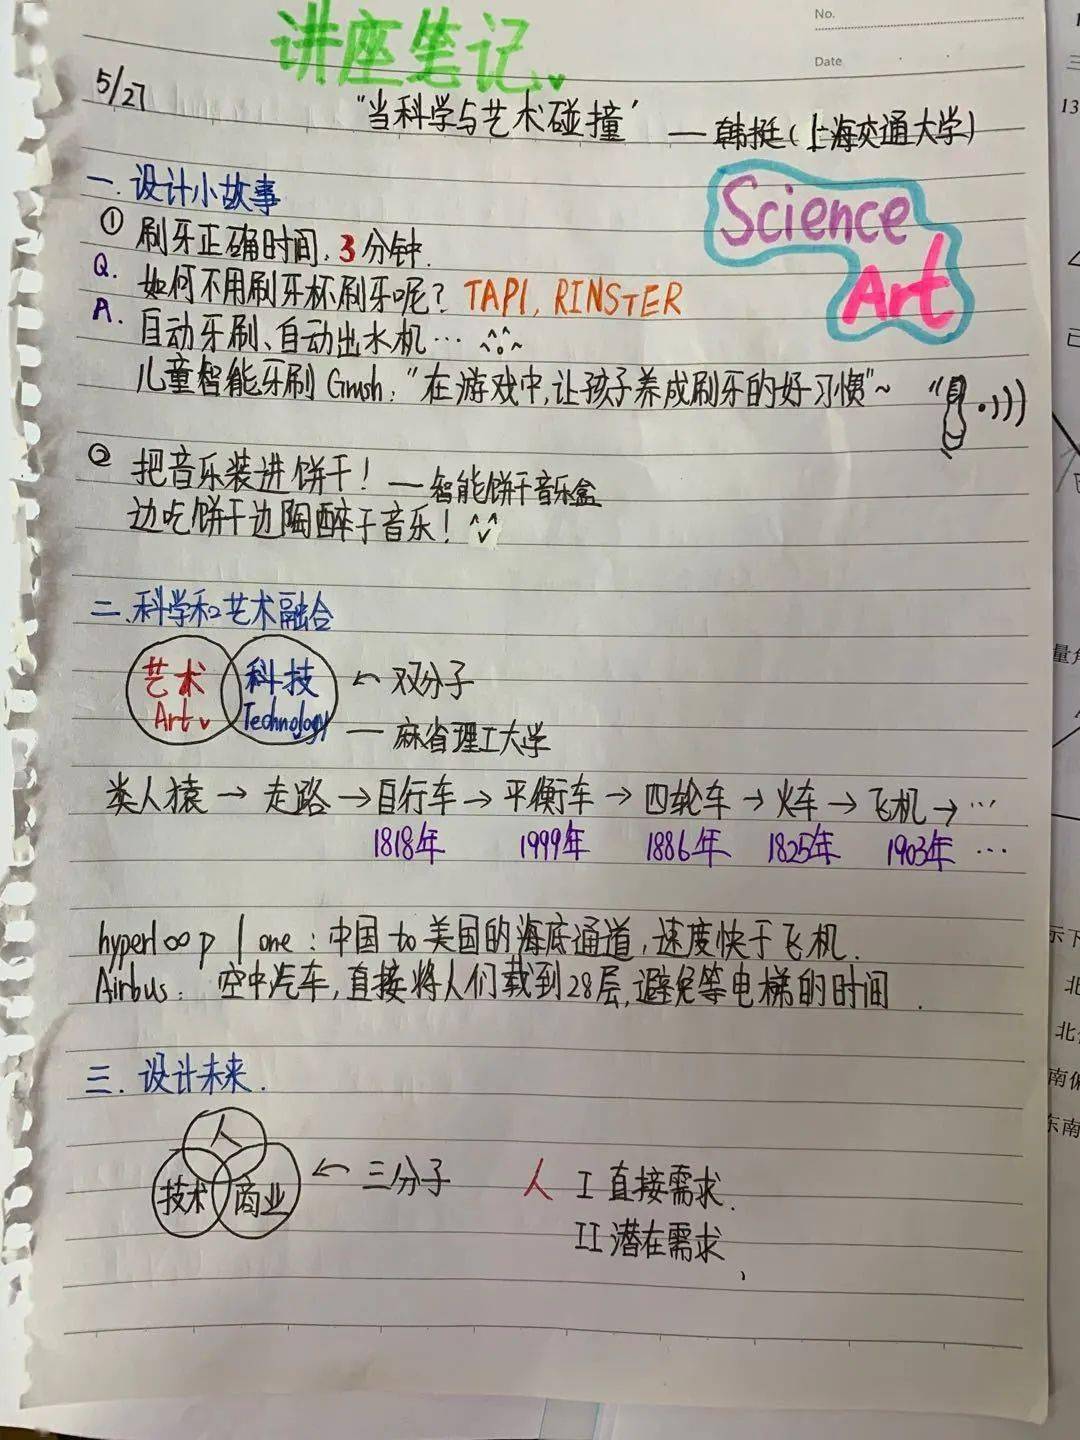 讲座笔记
No.
Date
5/27
"当科学与艺术碰撞" — 韩挺(上海交通大学)
Science
Art
一.设计小故事
① 刷牙正确时间,3分钟.
Q. 如何不用刷牙杯刷牙呢? TAPI, RINSTER
A. 自动牙刷、自动出水机…
儿童智能牙刷 Grush: "在游戏中,让孩子养成刷牙的好习惯"~
② 把音乐装进饼干! — 智能饼干音乐盒
边吃饼干边陶醉于音乐!
二.科学和艺术融合
艺术 科技 ← 双分子
Art Technology — 麻省理工大学
类人猿 → 走路 → 自行车 → 平衡车 → 四轮车 → 火车 → 飞机 → …
1818年 1999年 1886年 1825年 1903年 …
hyperloop | one: 中国 to 美国的海底通道,速度快于飞机.
Airbus: 空中汽车,直接将人们载到28层,避免等电梯的时间.
三.设计未来.
人
技术 商业 ← 三分子
人 I 直接需求.
II 潜在需求